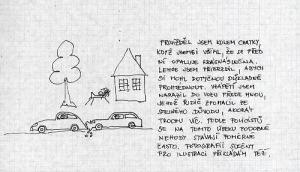 PROJÍŽDĚL JSEM KOLEM CHATKY,
KDYŽ JSEM SI VŠIML, ŽE JE PŘED
NÍ OPALUJE KRÁSNÁ SLEČNA.
LEHCE JSEM PŘIBRZDIL, ABYCH
SI MOHL DOTYČNOU DŮKLADNĚ
PROHLÉDNOUT. VZÁPĚTÍ JSEM
NARAZIL DO VOZU PŘEDE MNOU,
JEHOŽ ŘIDIČ ZPOMALIL ZE
STEJNÉHO DŮVODU, AKORÁT
TROCHU VÍC. PODLE POLICISTŮ
SE NA TOMTO ÚSEKU PODOBNÉ
NEHODY STÁVAJÍ POMĚRNĚ
ČASTO. FOTOGRAFII SLEČNY
PRO ILUSTRACI PŘIKLÁDÁM TÉŽ.